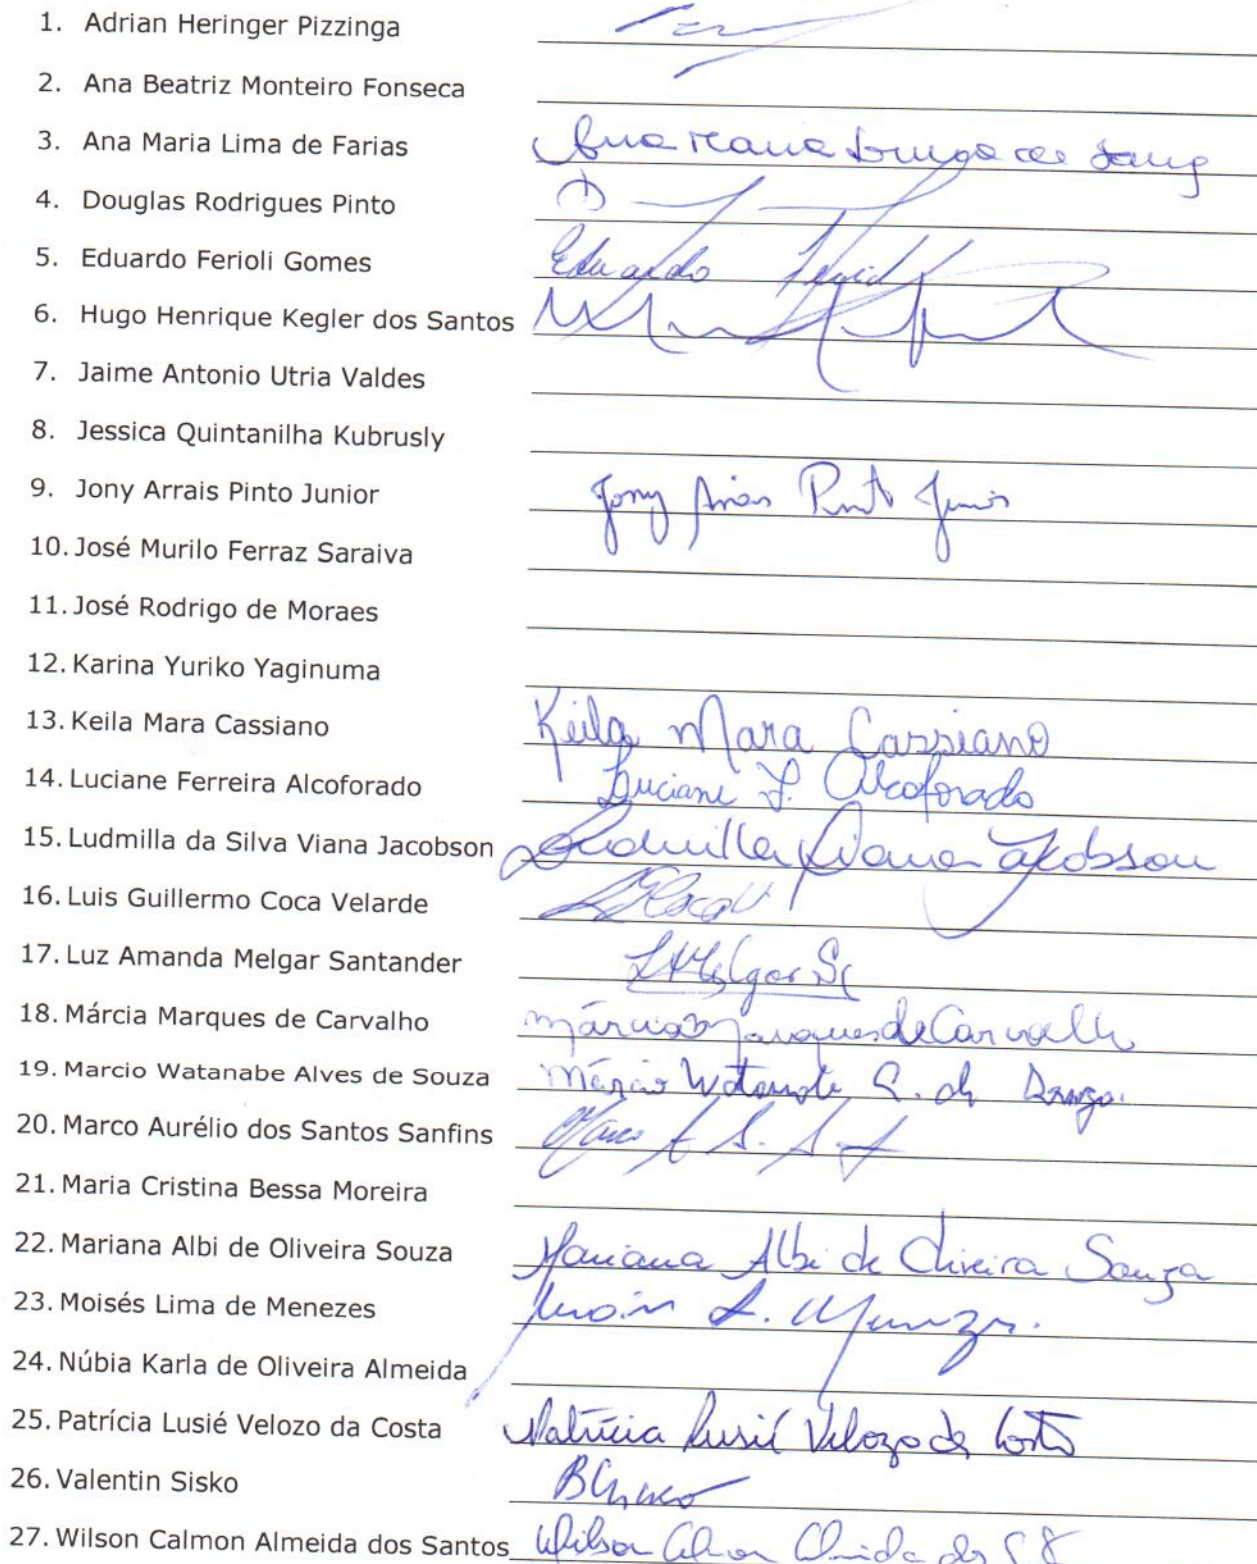 1. Adrian Heringer Pizzinga
2. Ana Beatriz Monteiro Fonseca
3. Ana Maria Lima de Farias
4. Douglas Rodrigues Pinto
5. Eduardo Ferioli Gomes Eduardo
6. Hugo Henrique Kegler dos Santos
7. Jaime Antonio Utria Valdes
8. Jessica Quintanilha Kubrusly
9. Jony Arrais Pinto Junior Jony Arrais Pinto Junior
10. José Murilo Ferraz Saraiva
11. José Rodrigo de Moraes
12. Karina Yuriko Yaginuma
13. Keila Mara Cassiano Keila Mara Cassiano
14. Luciane Ferreira Alcoforado Luciane F. Alcoforado
15. Ludmilla da Silva Viana Jacobson Ludmilla Viana Jacobson
16. Luis Guillermo Coca Velarde
17. Luz Amanda Melgar Santander LAMelgar S
18. Márcia Marques de Carvalho Márcia Marques de Carvalho
19. Marcio Watanabe Alves de Souza Márcio Watanabe A. de Souza
20. Marco Aurélio dos Santos Sanfins Marco A S.
21. Maria Cristina Bessa Moreira
22. Mariana Albi de Oliveira Souza Mariana Albi de Oliveira Souza
23. Moisés Lima de Menezes Moisés L. Menezes
24. Núbia Karla de Oliveira Almeida
25. Patrícia Lusié Velozo da Costa Patrícia Lusié Velozo da Costa
26. Valentin Sisko
27. Wilson Calmon Almeida dos Santos Wilson Calmon Almeida dos